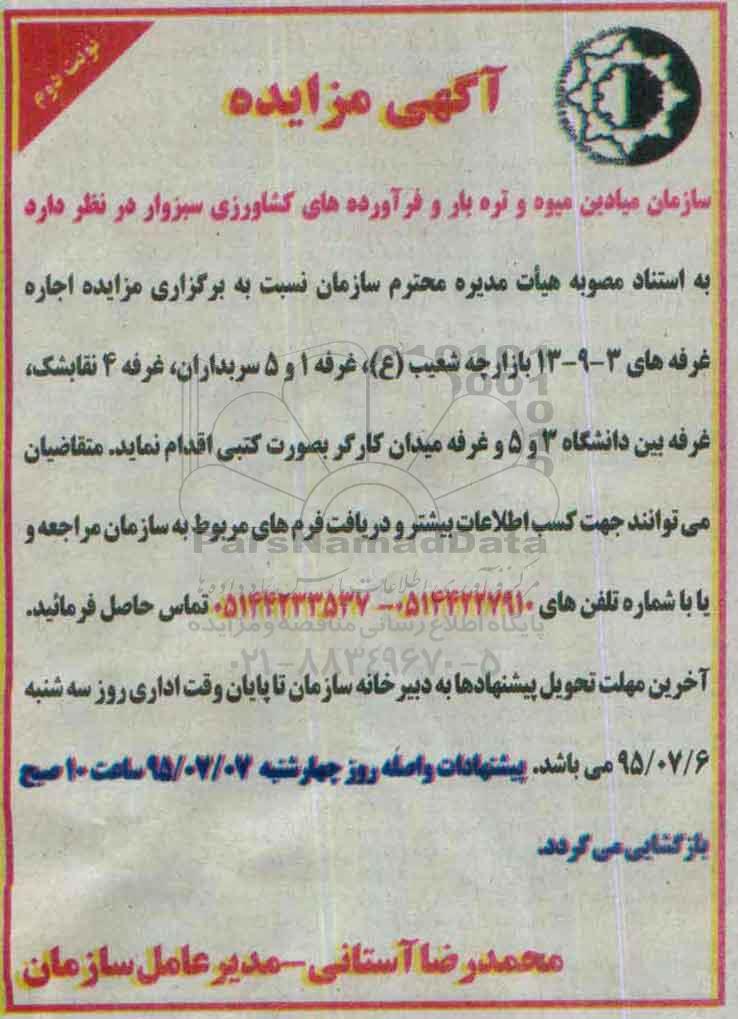 نوبت دوم
آگهی مزایده
سازمان میادین میوه و تره بار و فرآورده های کشاورزی سبزوار در نظر دارد
به استناد مصوبه هیأت مدیره محترم سازمان نسبت به برگزاری مزایده اجاره
غرفه های ۳-۹-۱۳ بازارچه شعیب (ع)، غرفه ۱ و ۵ سربداران، غرفه ۴ نقابشک،
غرفه بین دانشگاه ۳ و ۵ و غرفه میدان کارگر بصورت کتبی اقدام نماید. متقاضیان
می توانند جهت کسب اطلاعات بیشتر و دریافت فرم های مربوط به سازمان مراجعه و
ParsNamadData
یا با شماره تلفن های ۰۵۱۴۴۲۲۷۹۱۰- ۰۵۱۴۴۲۳۳۵۳۷ تماس حاصل فرمائید.
پایگاه اطلاع رسانی مناقصه و مزایده
۰۲۱-۸۸۳۴۹۶۷۰-۵
آخرین مهلت تحویل پیشنهادها به دبیرخانه سازمان تا پایان وقت اداری روز سه شنبه
۹۵/۰۷/۶ می باشد. پیشنهادات واصله روز چهارشنبه ۹۵/۰۷/۰۷ ساعت ۱۰ صبح
بازگشایی می گردد.
محمدرضا آستانی-مدیرعامل سازمان